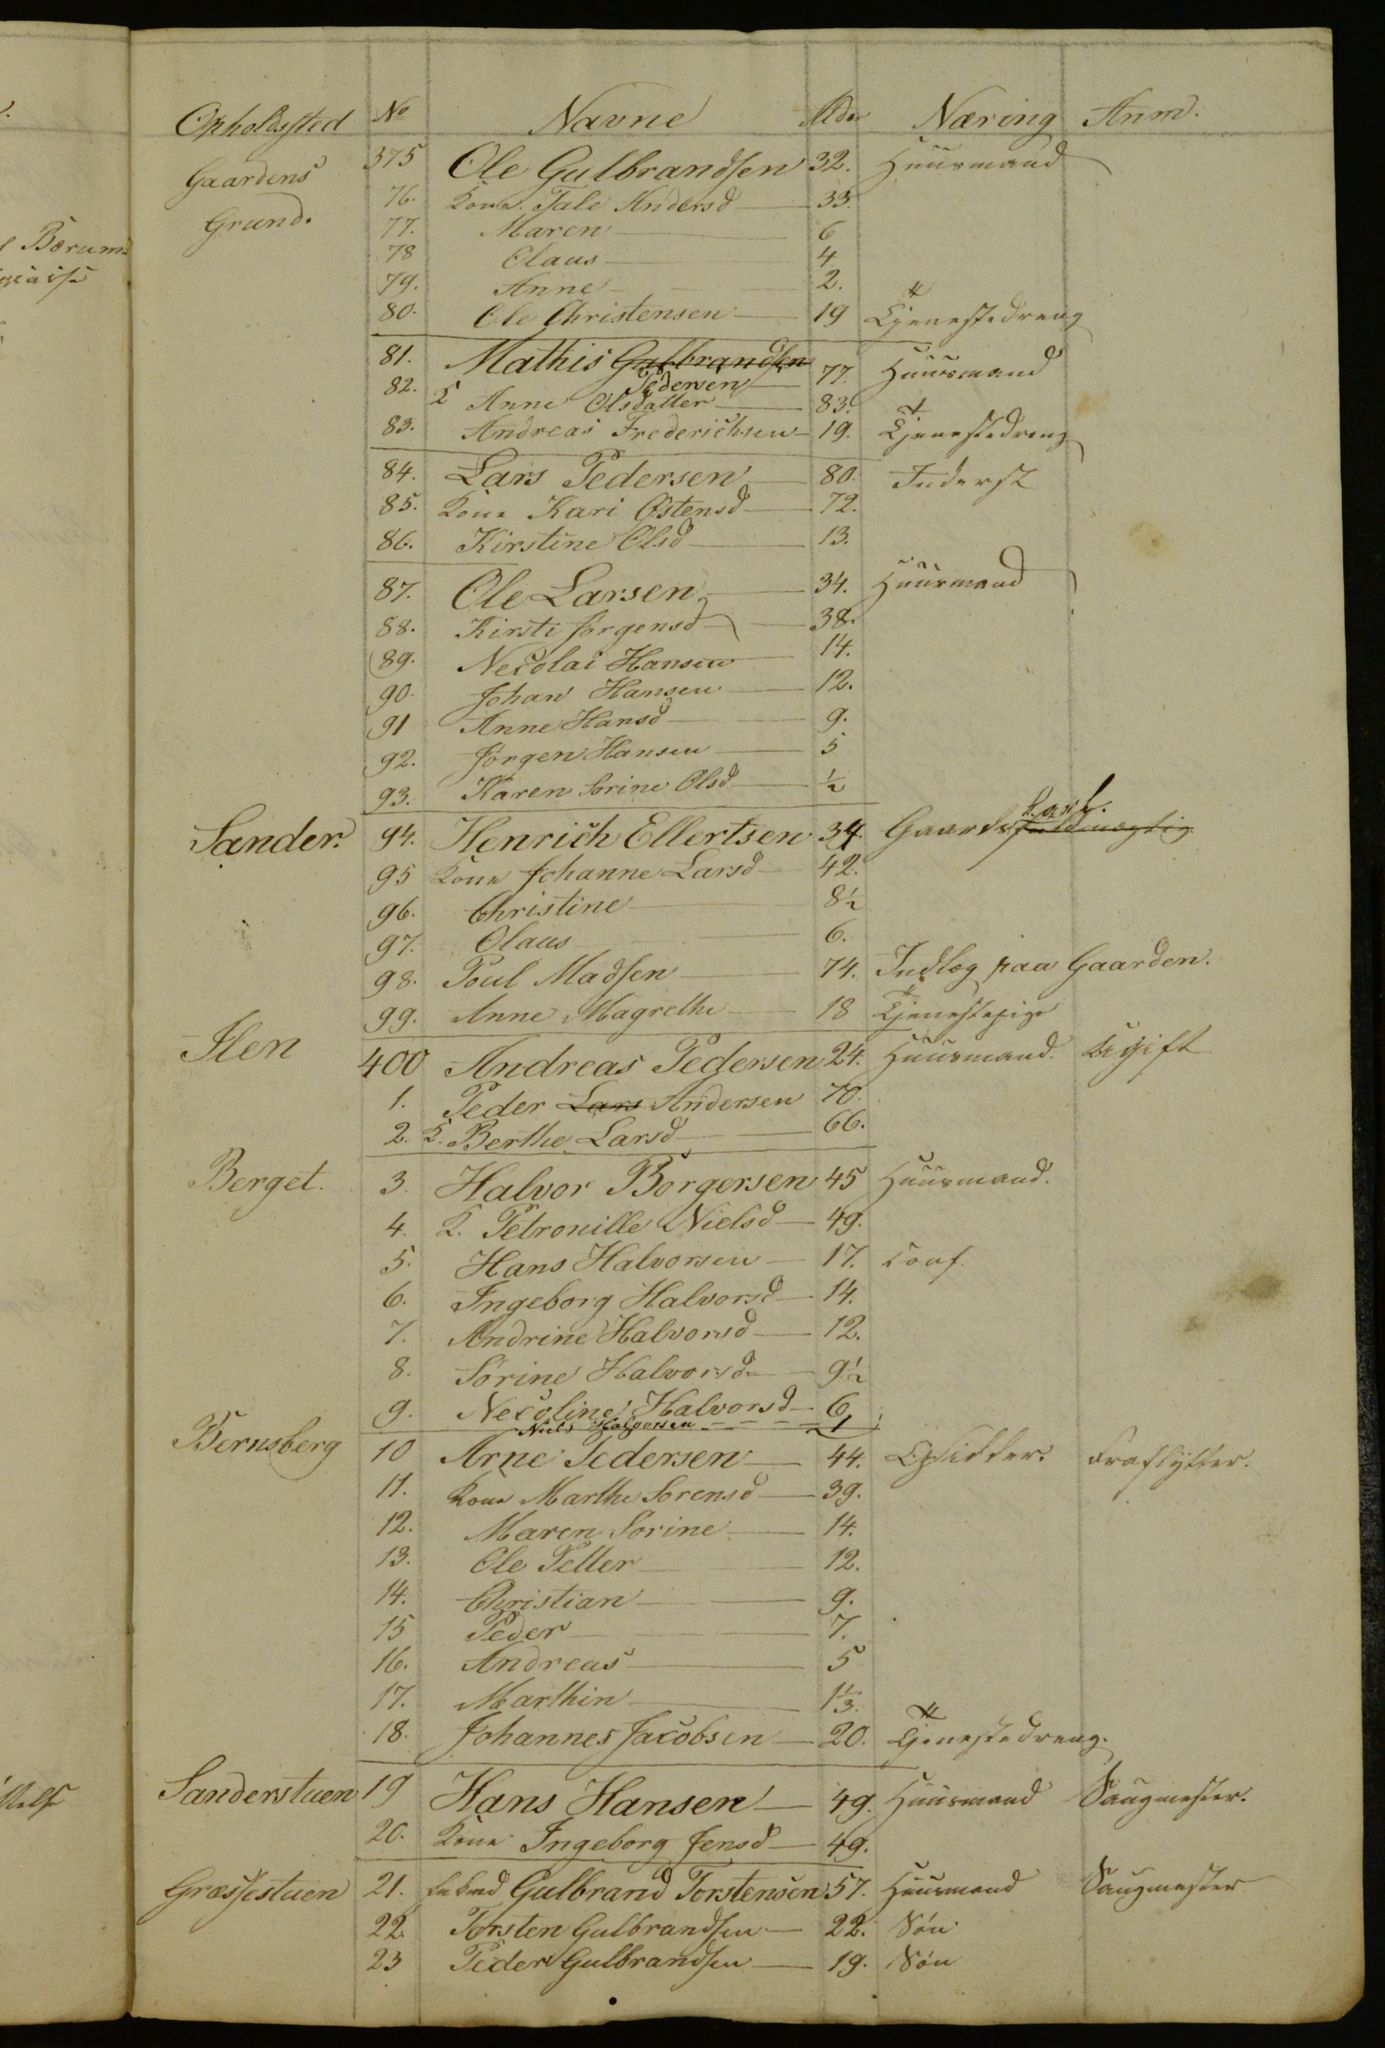 Opholdssted No Navne Alder Næring Anm.
Gaardens 375 Ole Gulbrandsen 32. Huusmand
Grund. 76. Kone. Tale Andersd 33.
77. Maren 6
78 Olaus 4
79. Anne 2.
80. Ole Christensen 19 Tjenestedreng
81. Mathis Gulbrandsen Pedersen 77. Huusmand
82. K Anne Olsdatter 83.
83. Andreas Frederichsen 19. Tjenestedreng
84. Lars Pedersen 80. Inderst
85. Kone Kari Østensd 72.
86. Kirstine Olsd 13.
87. Ole Larsen 34. Huusmand
88. Kirsti Jørgensd 38.
89. Necolai Hansen 14.
90. Johan Hansen 12.
91 Anne Hansd 9.
92. Jørgen Hansen 5
93. Karen Sorine Olsd ½
Sander. 94. Henrich Ellertsen 34. Gaards Fuldmægtig
95 Kone Johanne Larsd 42.
96. Christine 8½
97. Olaus 6.
98. Poul Madsen 74. Indlæg paa Gaarden.
99. Anne Magrethe 18 Tjenestepige
Ilen 400 Andreas Pedersen 24. Huusmand. Ugift
1. Peder Lars Andersen 70.
2. K. Berthe Larsd 66.
Berget. 3. Halvor Borgersen 45 Huusmand.
4. K. Petronille Nielsd 49.
5. Hans Halvorsen 17. Conf.
6. Ingeborg Halvorsd 14.
7. Andrine Halvorsd 12.
8. Sørine Halvorsd 9½
9. Necoline Halvorsd 6
Niels Halvorsen 1
Bernsberg 10 Arne Pedersen 44. Opsidder. Fraflytter.
11. Kone Marthe Sorensd 39.
12. Maren Sorine 14.
13. Ole Petter 12.
14. Christian 9.
15 Peder 7.
16. Andreas 5
17. Marthin 1⅓.
18. Johannes Jacobsen 20. Tjenestedreng.
Sanderstuen 19 Hans Hansen 49. Huusmand Saugmester.
20. Kone Ingeborg Jensd 49.
Græssestuen 21. Gulbrand Torstensen 57. Huusmand Saugmester
22. Torsten Gulbrandsen 22. Søn
23 Peder Gulbrandsen 19. Søn